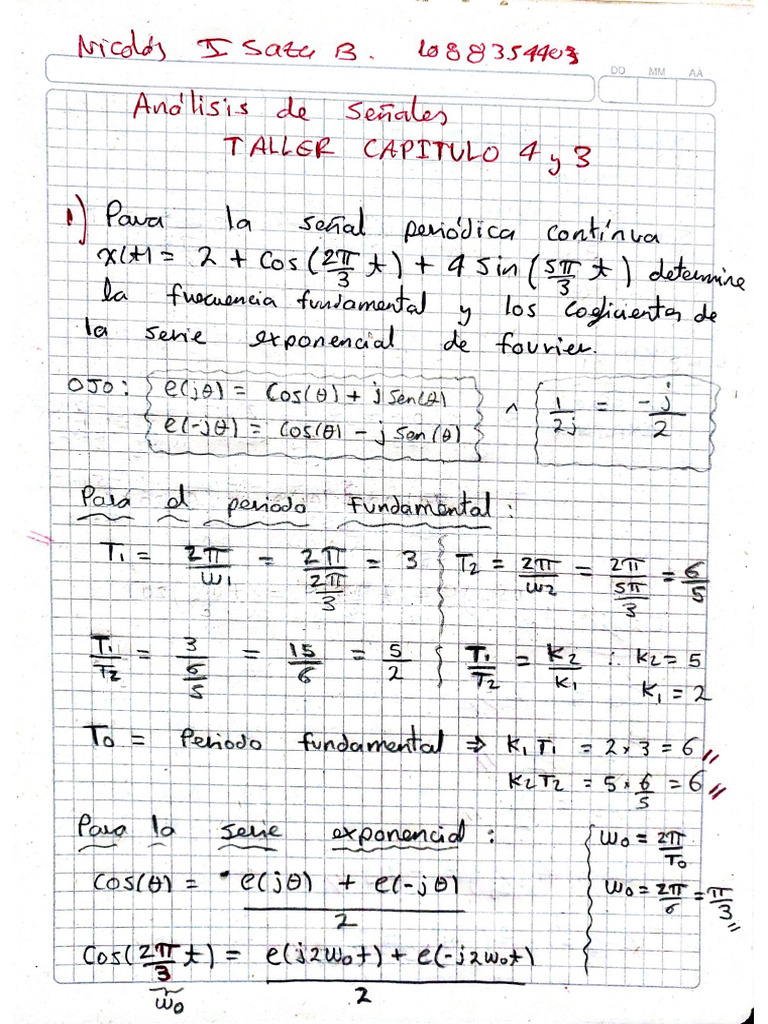 Nicolás I Saza B. 1088354403
DD MM AA
Análisis de Señales
TALLER CAPITULO 4 y 3
1) Para la señal periódica contínua
x(t) = 2 + cos(2π/3 t) + 4 sin(5π/3 t) determine
la frecuencia fundamental y los coeficientes de
la serie exponencial de fourier.
OJO: e(jθ) = cos(θ) + j sen(θ) ^ 1/2j = -j/2
e(-jθ) = cos(θ) - j sen(θ)
Para el periodo fundamental:
T1 = 2π/ω1 = 2π/(2π/3) = 3 T2 = 2π/ω2 = 2π/(5π/3) = 6/5
T1/T2 = 3/(6/5) = 15/6 = 5/2 T1/T2 = K2/K1 ∴ K2 = 5
K1 = 2
T0 = Periodo fundamental ⇒ K1T1 = 2 × 3 = 6
K2T2 = 5 × 6/5 = 6
Para la serie exponencial: ω0 = 2π/T0
cos(θ) = (e(jθ) + e(-jθ))/2 ω0 = 2π/6 = π/3
cos(2π/3 t) = (e(j2ω0t) + e(-j2ω0t))/2
ω0